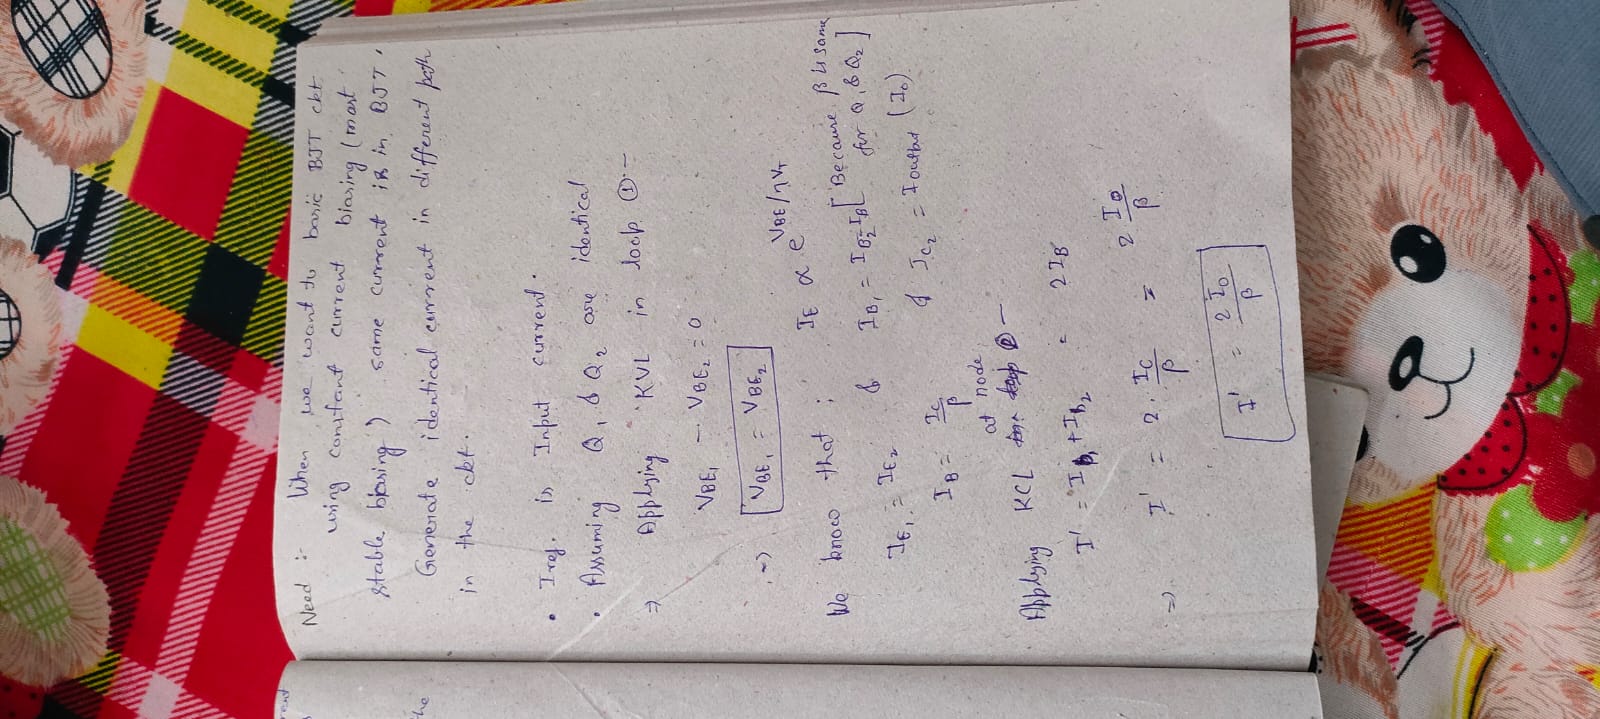 Need :- When we want to basic BJT ckt
using constant current biasing (most
stable biasing) same current is in BJT.
Generate identical current in different path
in the ckt.
• Iref. is Input current.
• Assuming Q1 & Q2 are identical
⇒ Applying KVL in loop ① :-
VBE1 - VBE2 = 0
⇒) VBE1 = VBE2
We know that ; IE ∝ e^VBE/ηVT
IE1 = IE2 & IB1 = IB2 = IB [Because β is same
for Q1 & Q2]
IB = IC/β & IC2 = Ioutput (Io)
Applying KCL at node ② —
I' = IB1 + IB2 = 2IB
⇒) I' = 2·IC/β = 2 Io/β
I' = 2Io/β
rent
the